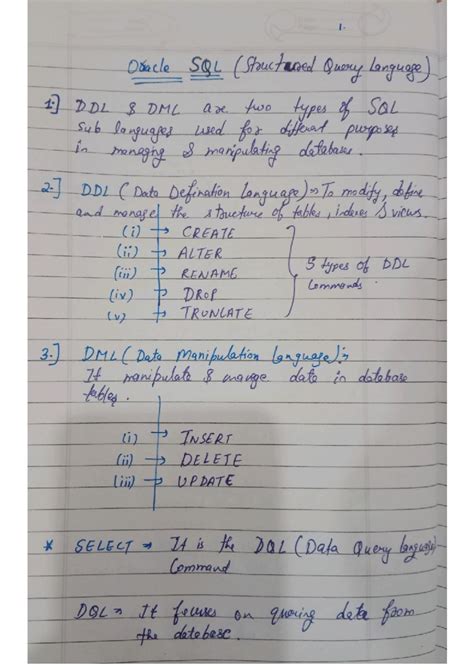 1.
Oracle SQL (Structured Query Language)
1.] DDL & DML are two types of SQL
Sub languages used for different purposes
in managing & manipulating database.
2.] DDL (Data Defination Language) → To modify, define
and manage the structure of tables, indexes & views.
(i) → CREATE
(ii) → ALTER
(iii) → RENAME
(iv) → DROP
(v) → TRUNCATE
5 types of DDL
Commands.
3.] DML (Data Manipulation Language):
It manipulate & manage data in database
tables.
(i) → INSERT
(ii) → DELETE
(iii) → UPDATE
* SELECT → It is the DQL (Data Query language)
Command
DQL → It focuses on quering data from
the database.